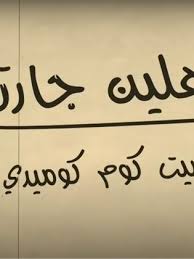 هلين جارت
يت كوم كوميدي